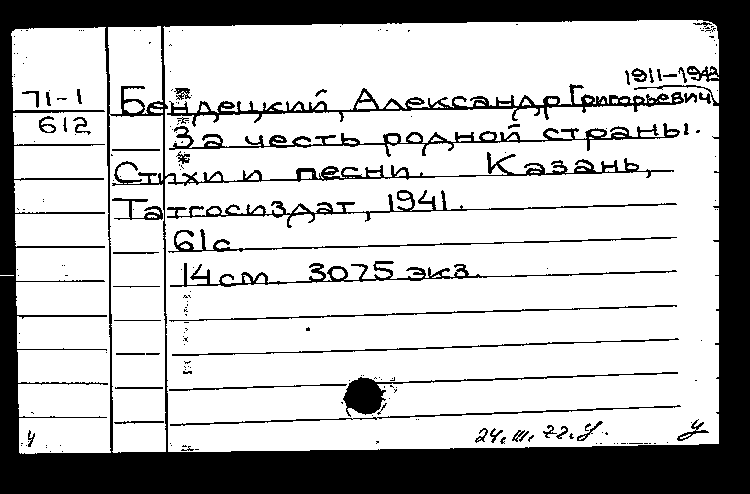 1911-1943
71-1 Бендецкий, Александр Григорьевич.
612 За честь родной страны.
Стихи и песни. Казань,
Татгосиздат, 1941.
61с.
14 см. 3075 экз.
ч 24.III.72.У. У